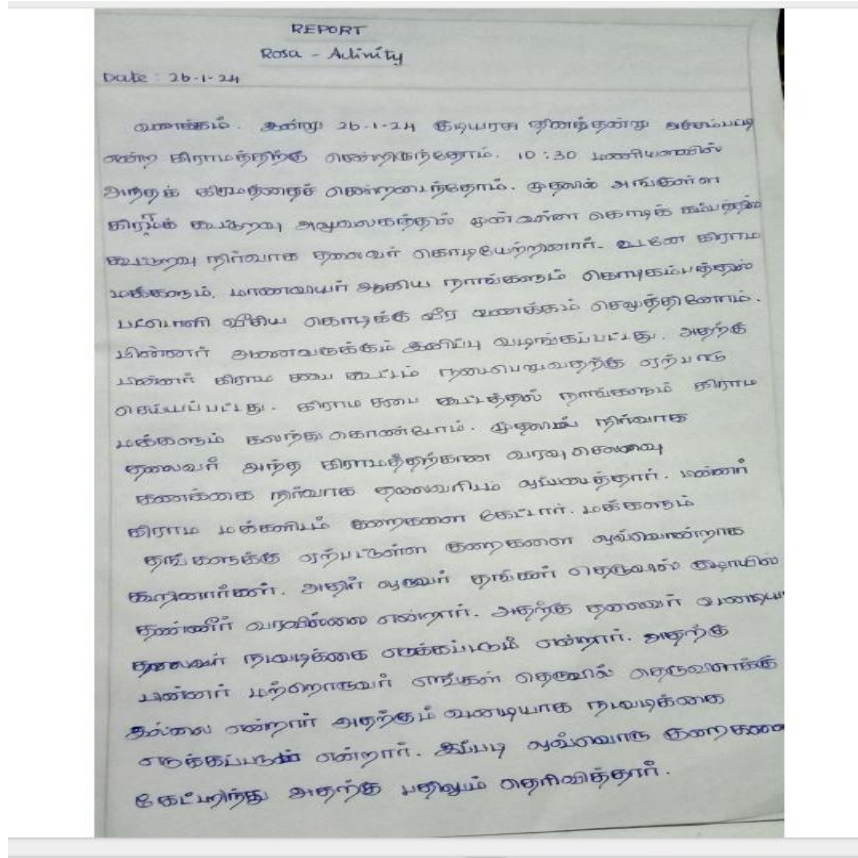 REPORT
Rosa - Activity
Date : 26-1-24
வணக்கம். இன்று 26-1-24 குடியரசு தினத்தன்று அச்சம்பட்டி
என்ற கிராமத்திற்கு சென்றிருந்தோம். 10:30 மணியளவில்
அந்தக் கிராமத்தைச் சென்றடைந்தோம். முதலில் அங்குள்ள
கிராமக் கூட்டுறவு அலுவலகத்தின் முன் உள்ள கொடிக் கம்பத்தில்
கூட்டுறவு நிர்வாக தலைவர் கொடியேற்றினார். உடனே கிராம
மக்களும், மாணவியர் ஆகிய நாங்களும் கொடிகம்பத்தில்
பட்டொளி வீசிய கொடிக்கு வீர வணக்கம் செலுத்தினோம்.
பின்னர் அனைவருக்கும் இனிப்பு வழங்கப்பட்டது. அதற்கு
பின்னர் கிராம சபை கூட்டம் நடைபெறுவதற்கு ஏற்பாடு
செய்யப்பட்டது. கிராம சபை கூட்டத்தில் நாங்களும் கிராம
மக்களும் கலந்து கொண்டோம். முதலில் நிர்வாக
தலைவர் அந்த கிராமத்திற்கான வரவு செலவு
கணக்கை நிர்வாக தலைவரிடம் ஒப்படைத்தார். பின்னர்
கிராம மக்களிடம் குறைகளை கேட்டார். மக்களும்
தங்களுக்கு ஏற்பட்டுள்ள குறைகளை ஒவ்வொன்றாக
கூறினார்கள். அதில் ஒருவர் தங்கள் தெருவில் குழாயில்
தண்ணீர் வரவில்லை என்றார். அதற்கு தலைவர் உடனடியாக
தலைவர் நடவடிக்கை எடுக்கப்படும் என்றார். அதற்கு
பின்னர் மற்றொருவர் எங்கள் தெருவில் தெருவிளக்கு
இல்லை என்றார் அதற்கும் உடனடியாக நடவடிக்கை
எடுக்கப்படும் என்றார். இப்படி ஒவ்வொரு குறைகளை
கேட்டறிந்து அதற்கு பதிலும் தெரிவித்தார்.